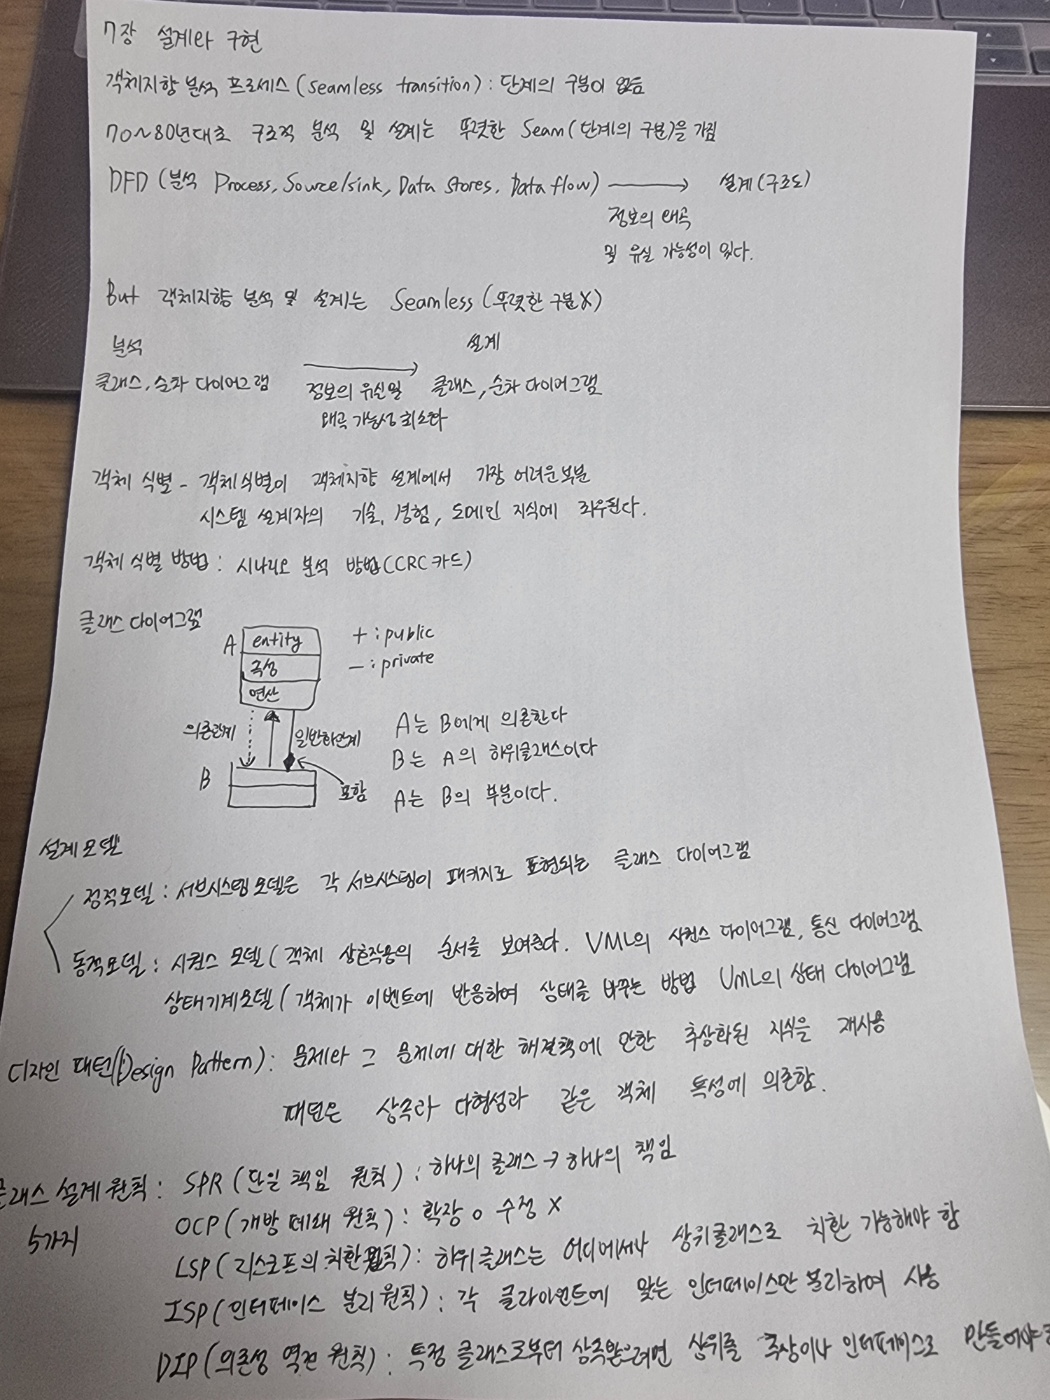 7장 설계와 구현
객체지향 분석 프로세스(Seamless transition): 단계의 구분이 없음
70~80년대초 구조적 분석 및 설계는 뚜렷한 Seam(단계의 구분)을 가짐
DFD (분석 Process, Source/sink, Data Stores, Data flow) → 설계(구조도)
정보의 왜곡
및 유실 가능성이 있다.
But 객체지향 분석 및 설계는 Seamless (뚜렷한 구분X)
분석 설계
클래스, 순차 다이어그램 → 클래스, 순차 다이어그램
정보의 유실및
왜곡 가능성 최소화
객체 식별 - 객체 식별이 객체지향 설계에서 가장 어려운 부분
시스템 설계자의 기술, 경험, 도메인 지식에 좌우된다.
객체 식별 방법: 시나리오 분석 방법(CRC 카드)
클래스 다이어그램
A entity + : public
속성 - : private
연산
의존관계 일반화관계 A는 B에게 의존한다
B는 A의 하위클래스이다
B 포함 A는 B의 부분이다.
설계 모델
정적모델: 서브시스템 모델은 각 서브시스템이 패키지로 표현되는 클래스 다이어그램
동적모델: 시퀀스 모델(객체 상호작용의 순서를 보여준다. UML의 시퀀스 다이어그램, 통신 다이어그램
상태기계모델(객체가 이벤트에 반응하여 상태를 바꾸는 방법 UML의 상태 다이어그램
디자인 패턴(Design Pattern): 문제와 그 문제에 대한 해결책에 관한 추상화된 지식을 재사용
패턴은 상속과 다형성과 같은 객체 특성에 의존함.
클래스 설계 원칙: SPR (단일 책임 원칙): 하나의 클래스 → 하나의 책임
5가지 OCP (개방 폐쇄 원칙): 확장 o 수정 X
LSP (리스코프의 치환원칙): 하위클래스는 어디에서나 상위클래스로 치환 가능해야 함
ISP (인터페이스 분리 원칙): 각 클라이언트에 맞는 인터페이스만 분리하여 사용
DIP (의존성 역전 원칙): 특정 클래스로부터 상속받으려면 상위를 추상이나 인터페이스로 만들어야